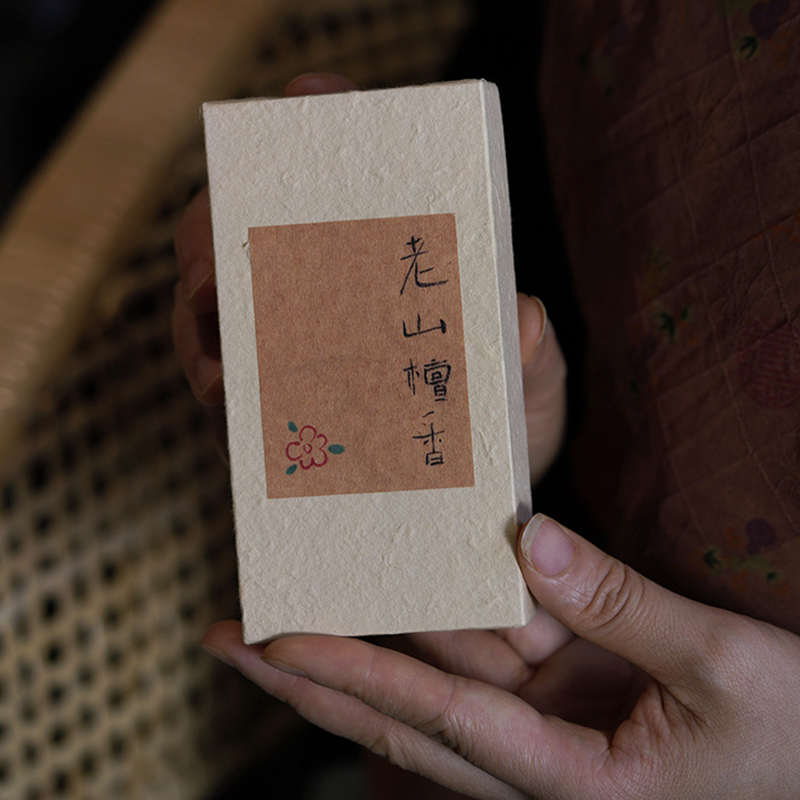 老山檀香